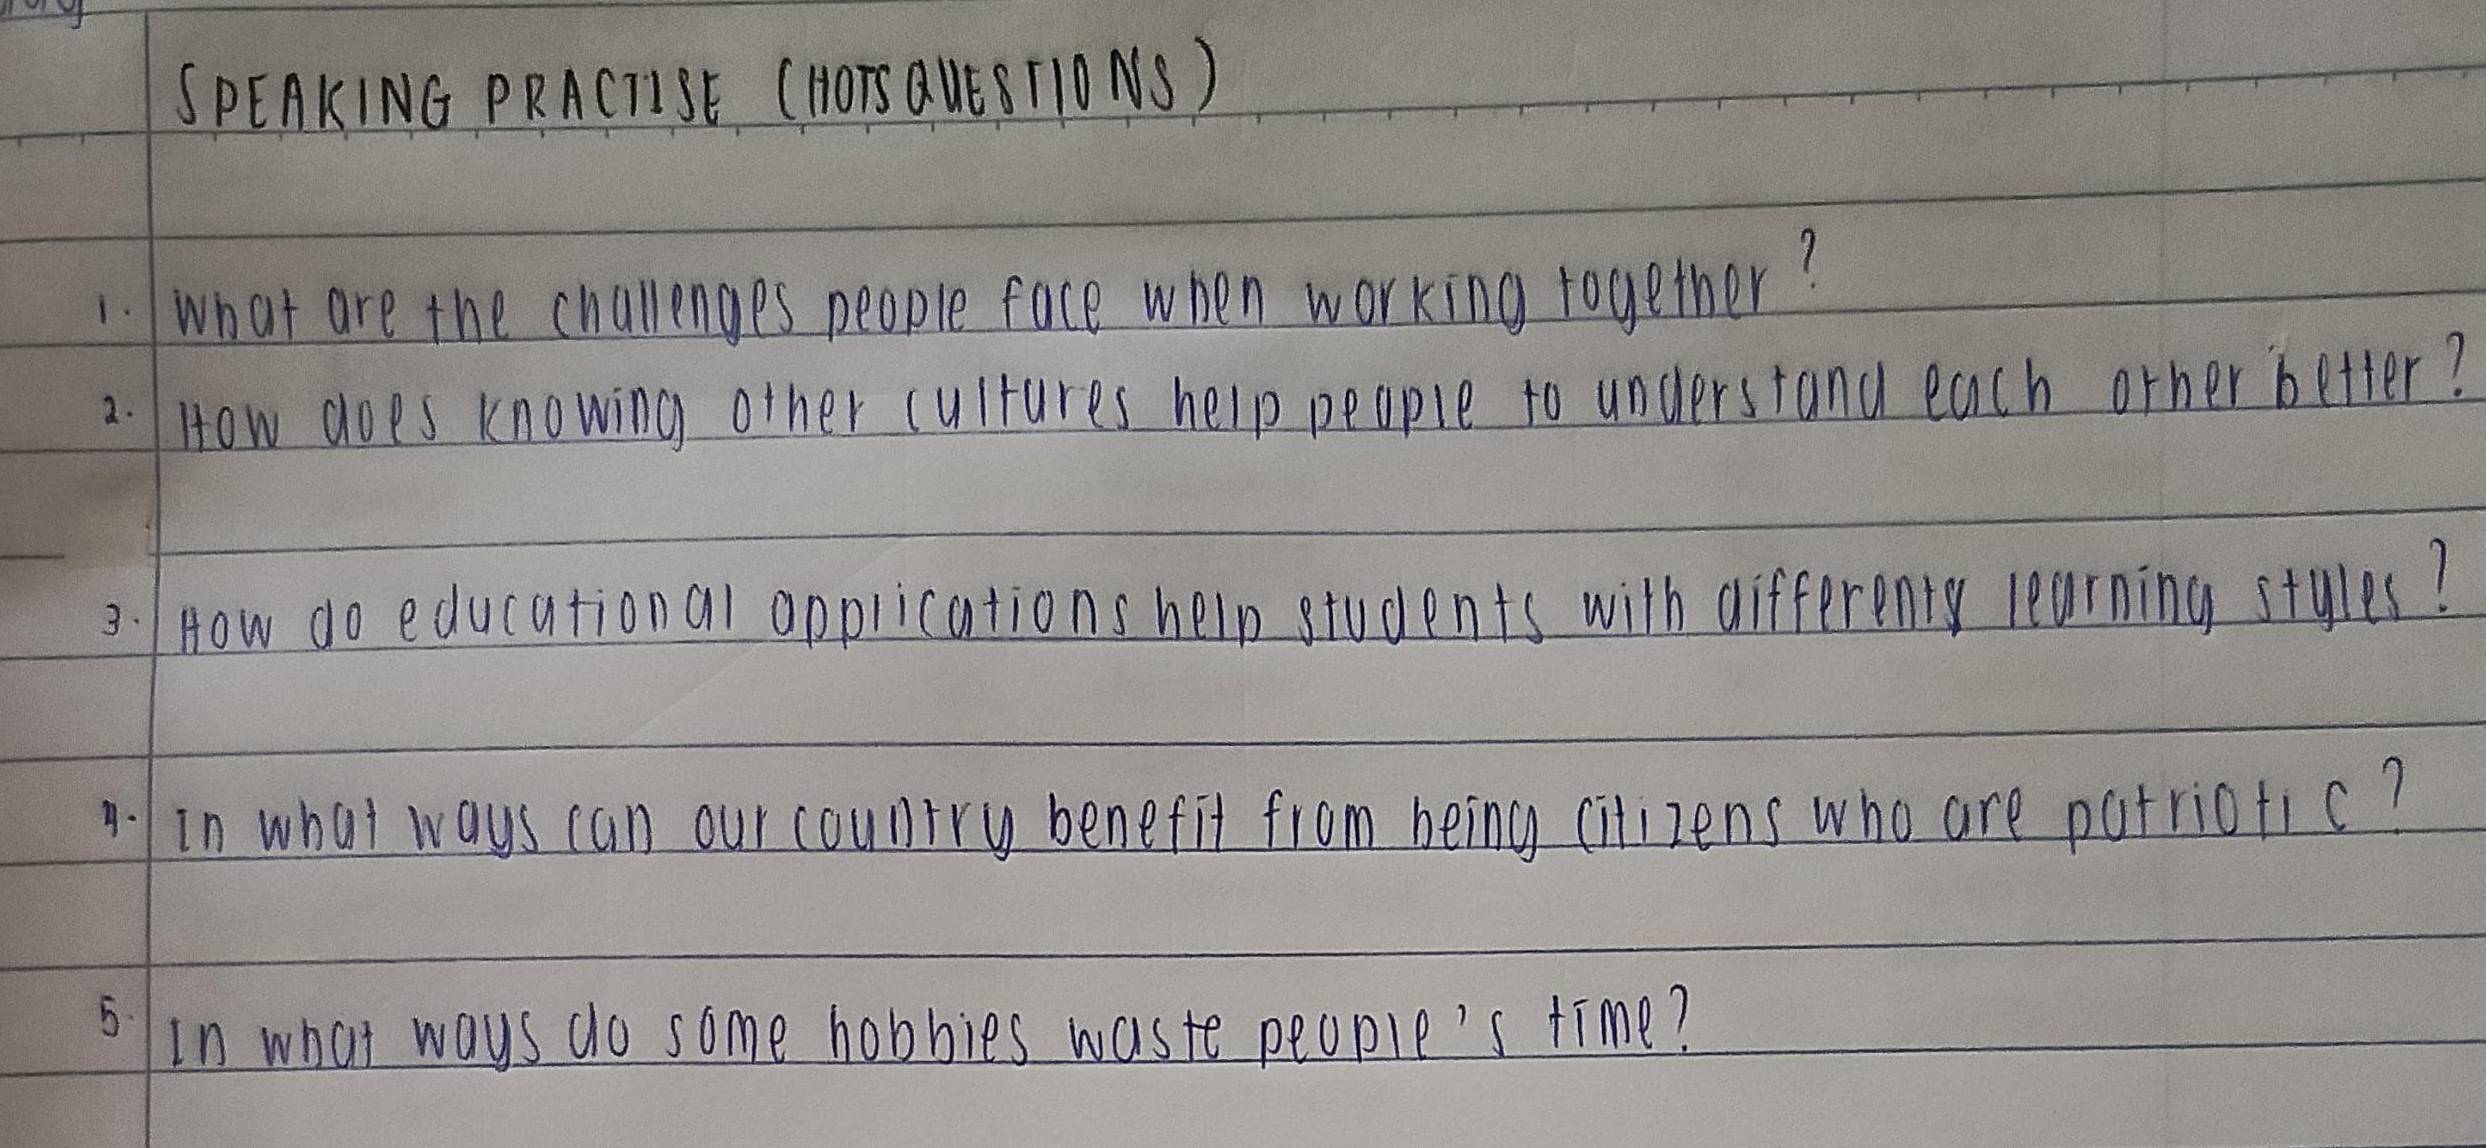 SPEAKING PRACTISE (HOTS QUESTIONS)
1. What are the challenges people face when working together?
2. How does knowing other cultures help people to understand each other better?
3. How do educational applications help students with different learning styles?
4. In what ways can our country benefit from being citizens who are patriotic?
5. In what ways do some hobbies waste people's time?